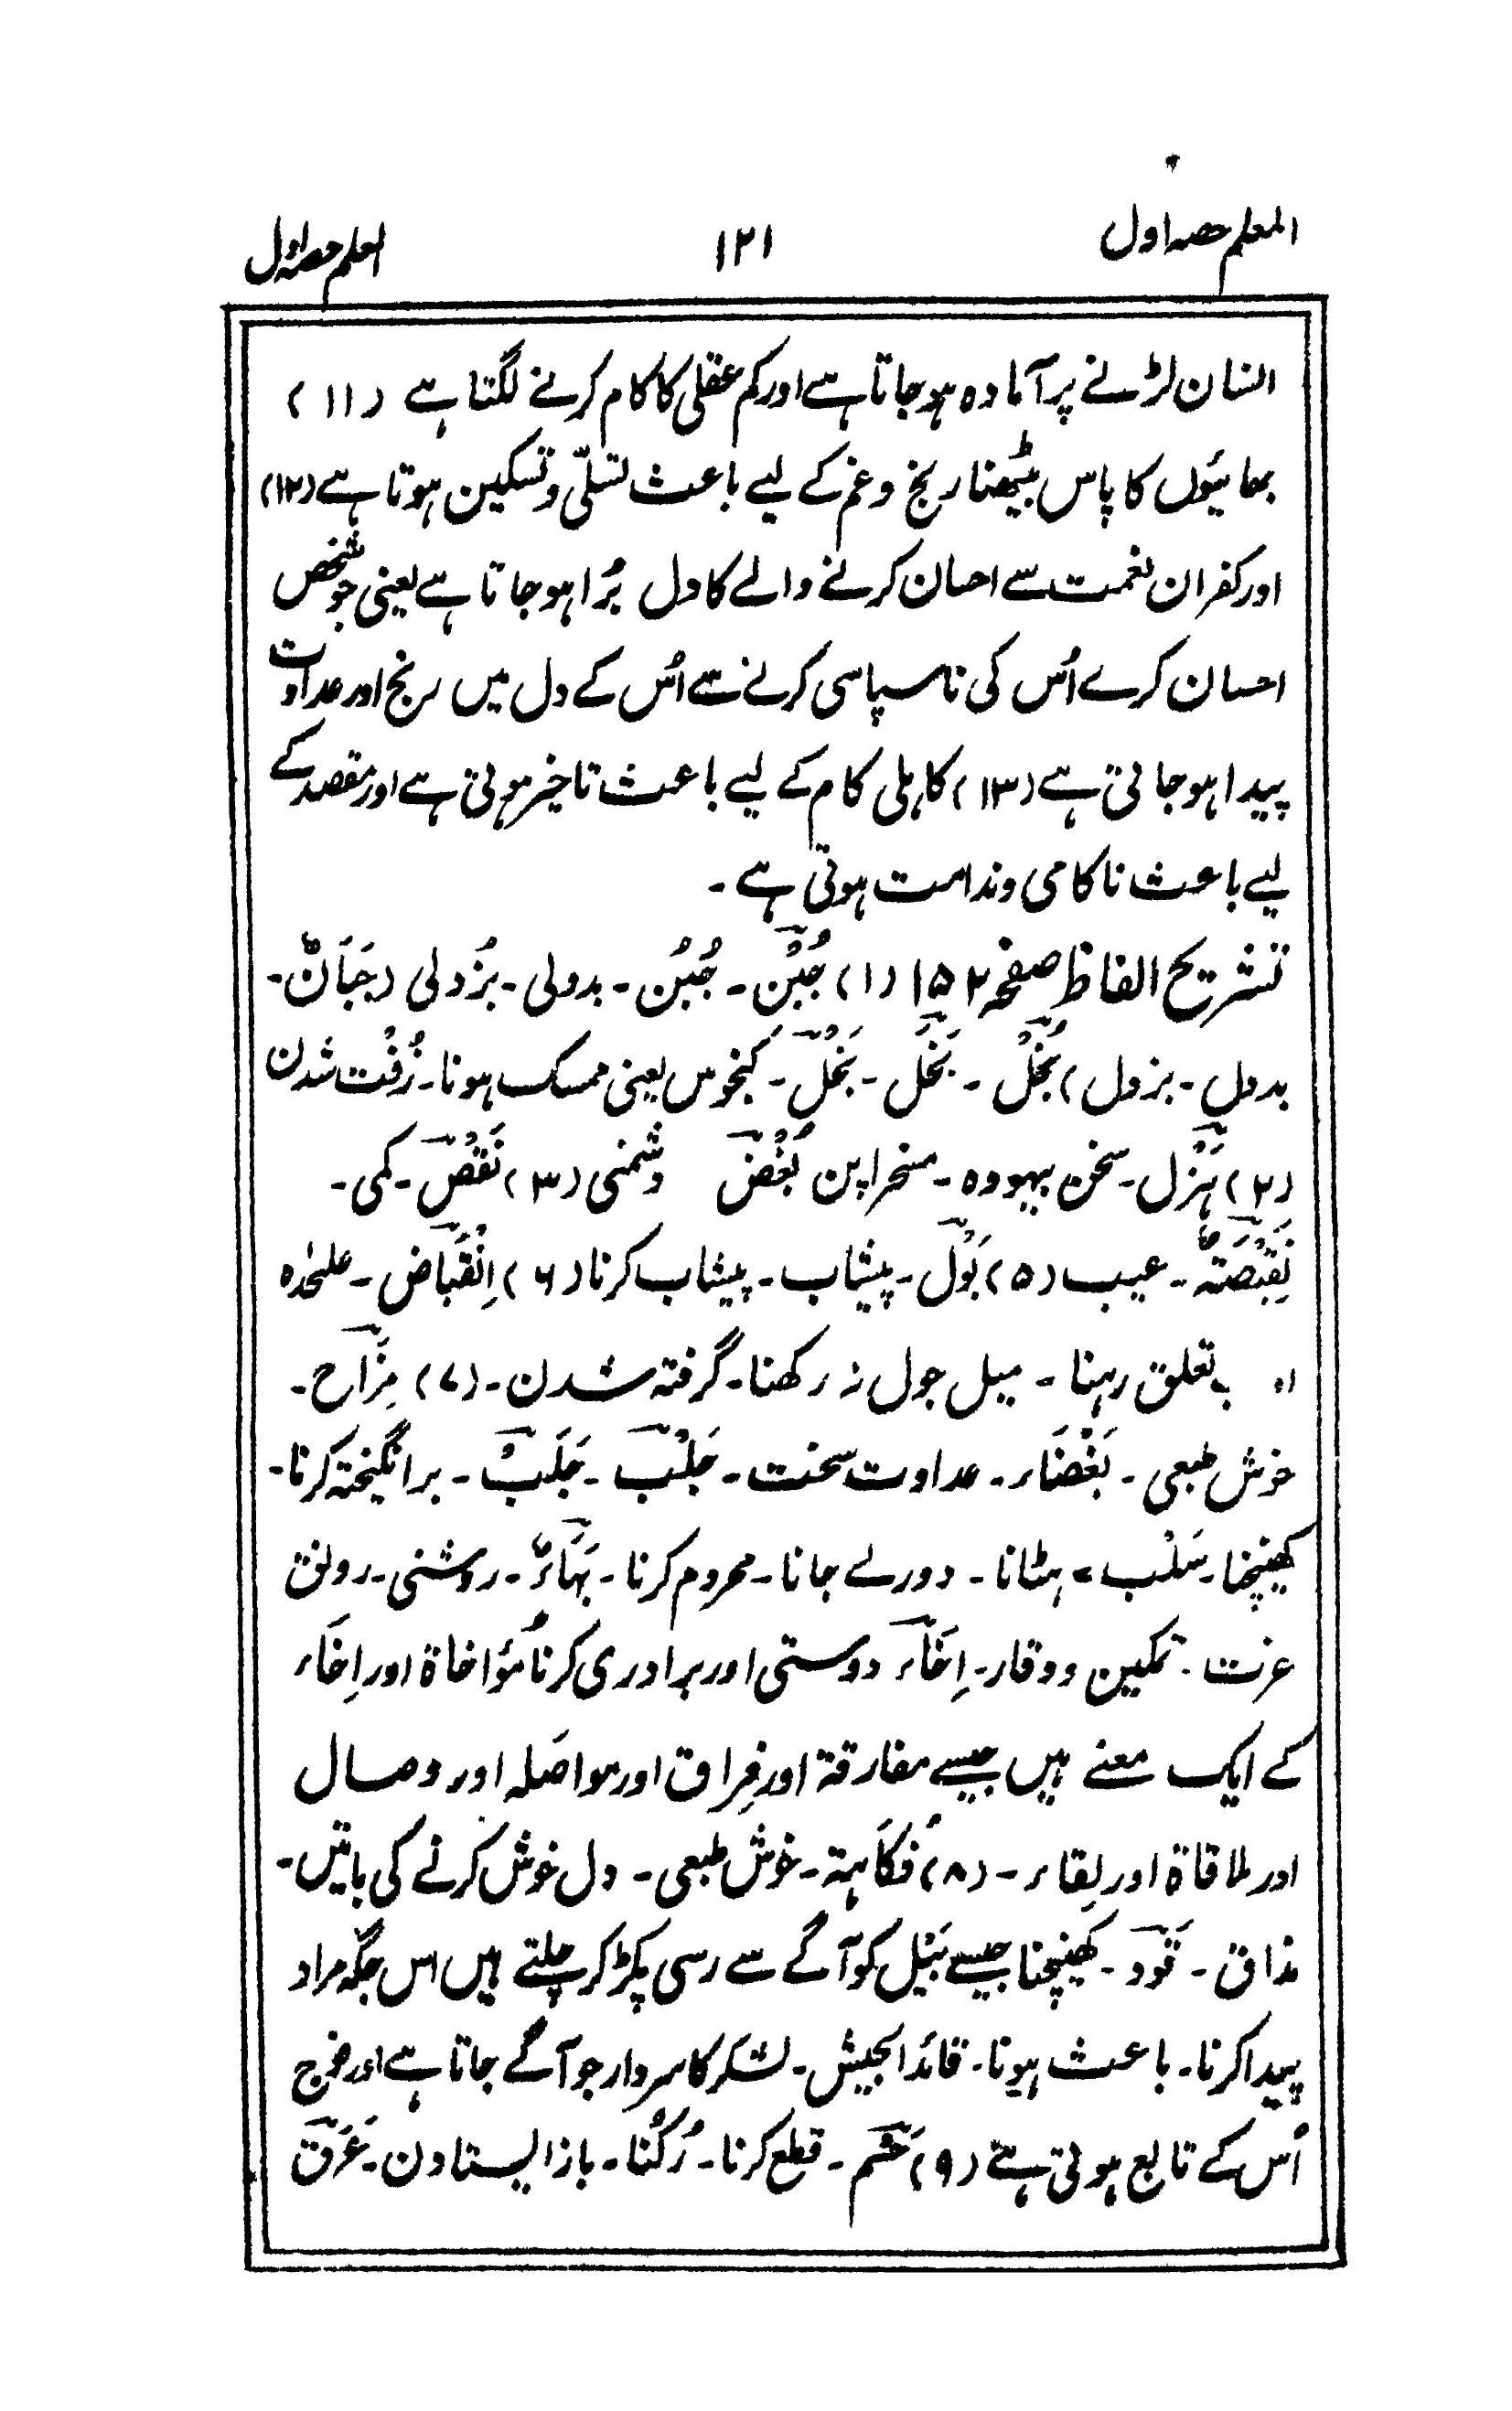 المعلم حصہ اول ۱۲۱ المعلم حصہ اول
انسان لڑنے پر آمادہ ہوجاتا ہے اور کم عقلی کا کام کرنے لگتا ہے (۱۱)
بھائیوں کا پاس بیٹھنا رنج و غم کے لیے باعث تسلّی و تسکین ہوتا ہے (۱۲)
اور کفران نعمت سے احسان کرنے والے کا دل بُرا ہو جاتا ہے یعنی جو شخص
احسان کرے اُس کی ناسپاسی کرنے سے اُس کے دل میں رنج اور عداوت
پیدا ہو جاتی ہے (۱۳) کاہلی کام کے لیے باعث تاخیر ہوتی ہے اور مقصد کے
لیے باعث ناکامی و ندامت ہوتی ہے ۔
تشریح الفاظ صفحہ ۱۵۲ (۱) جُبْن ۔ جُبُن ۔ بددلی ۔ بُزدلی (جَبَانٌ ۔
بددل ۔ بزدل) بُخْل ۔ بَخَل ۔ بَخْل ۔ کنجوس یعنی ممسک ہونا ۔ زُفْت شدن
(۲) ہَزْل ۔ سخن بیہودہ ۔ مسخراپن بُغْض دشمنی (۳) نَقْص ۔ کمی ۔
نَقِیْصَۃٌ ۔ عیب (۵) بَوْل ۔ پیشاب ۔ پیشاب کرنا (۶) اِنْقِبَاض ۔ علیحدہ
بے تعلق رہنا ۔ میل جول نہ رکھنا ۔ گرفتہ شدن ۔ (۷) مِزَاح ۔
خوش طبعی ۔ بَغْضَاء ۔ عداوت سخت ۔ جَلْب ۔ جَلَب ۔ برانگیختہ کرنا ۔
کھینچنا ۔ سَلْب ۔ ہٹانا ۔ دور لے جانا ۔ محروم کرنا ۔ بَہَاءٌ ۔ روشنی ۔ رونق
عزت ۔ تمکین و وقار ۔ اِخَاء دوستی اور برادری کرنا مُؤاخاۃ اور اِخَاء
کے ایک معنے ہیں جیسے مفارقۃ اور فِراق اور مواصَلہ اور وصال
اور ملاقاۃ اور لِقاء ۔ (۸) فُکَاہۃ ۔ خوش طبعی ۔ دل خوش کرنے کی باتیں ۔
مذاق ۔ قَوْد ۔ کھینچنا جیسے بَیْل کو آگے سے رسی پکڑ کر چلتے ہیں اس جگہ مراد
پیدا کرنا ۔ باعث ہونا ۔ قائد الجیش ۔ لشکر کا سردار جو آگے جاتا ہے اور فوج
اُس کے تابع ہوتی ہے (۹) ۔ قطع کرنا ۔ رُکْنا ۔ باز ایستادن ۔ عَرَق